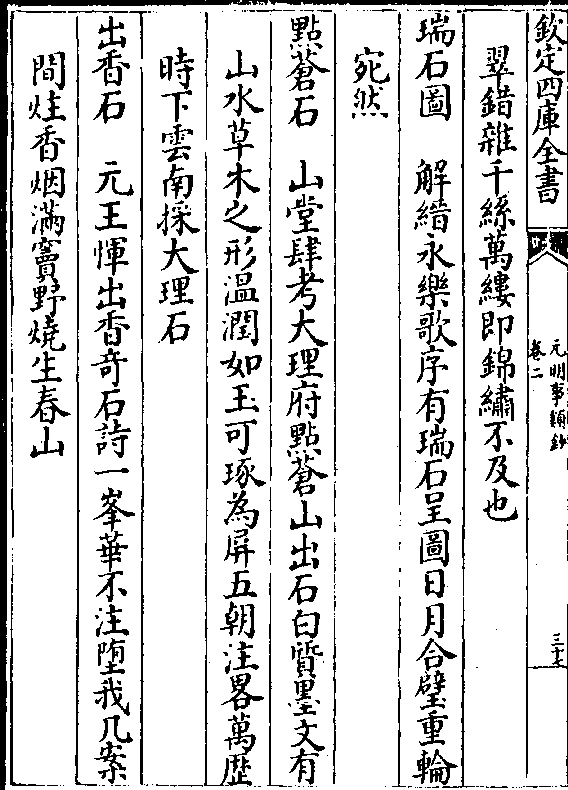 欽定四庫全書
元明事類鈔
卷二
三十七
翠錯雜千絲萬縷即錦繡不及也
瑞石圖　解縉永樂歌序有瑞石呈圖日月合璧重輪
宛然
點蒼石　山堂肆考大理府點蒼山出石白質墨文有
山水草木之形溫潤如玉可琢為屏五朝注畧萬歴
時下雲南採大理石
出香石　元王惲出香奇石詩一峯華不注墮我几案
間炷香烟滿竇野燒生春山